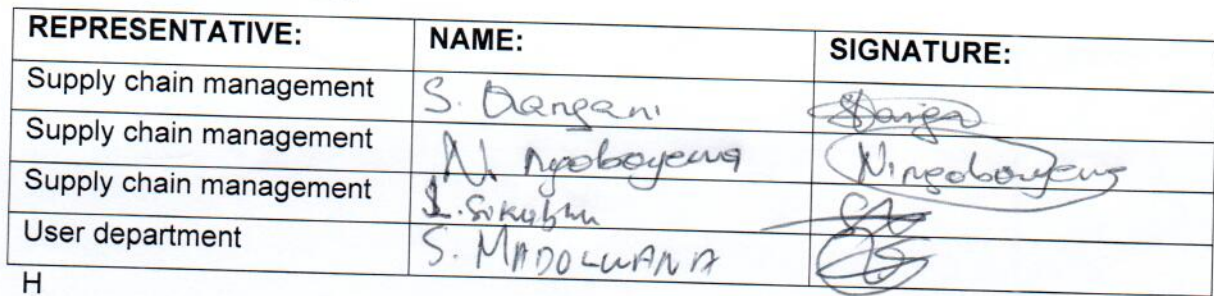 REPRESENTATIVE: NAME: SIGNATURE:
Supply chain management S. Dangani
Supply chain management N. Ngoboyewa
Supply chain management S. Sikubhu
User department S. MADOLWANA
H